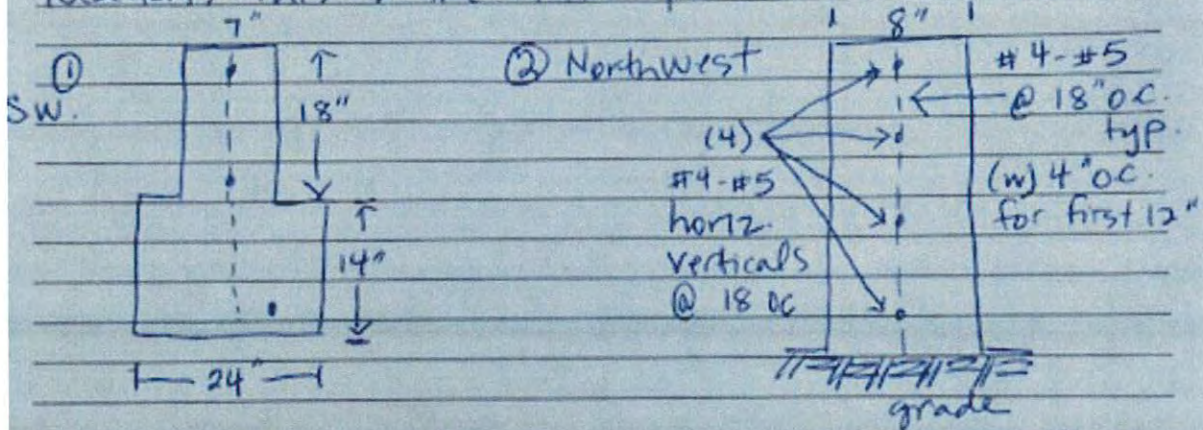 7"
①
SW.
18"
14"
24"
② Northwest
8"
(4)
#4-#5
horiz.
verticals
@ 18 oc
#4-#5
@ 18" o.c.
typ.
(w) 4" oc.
for first 12"
grade